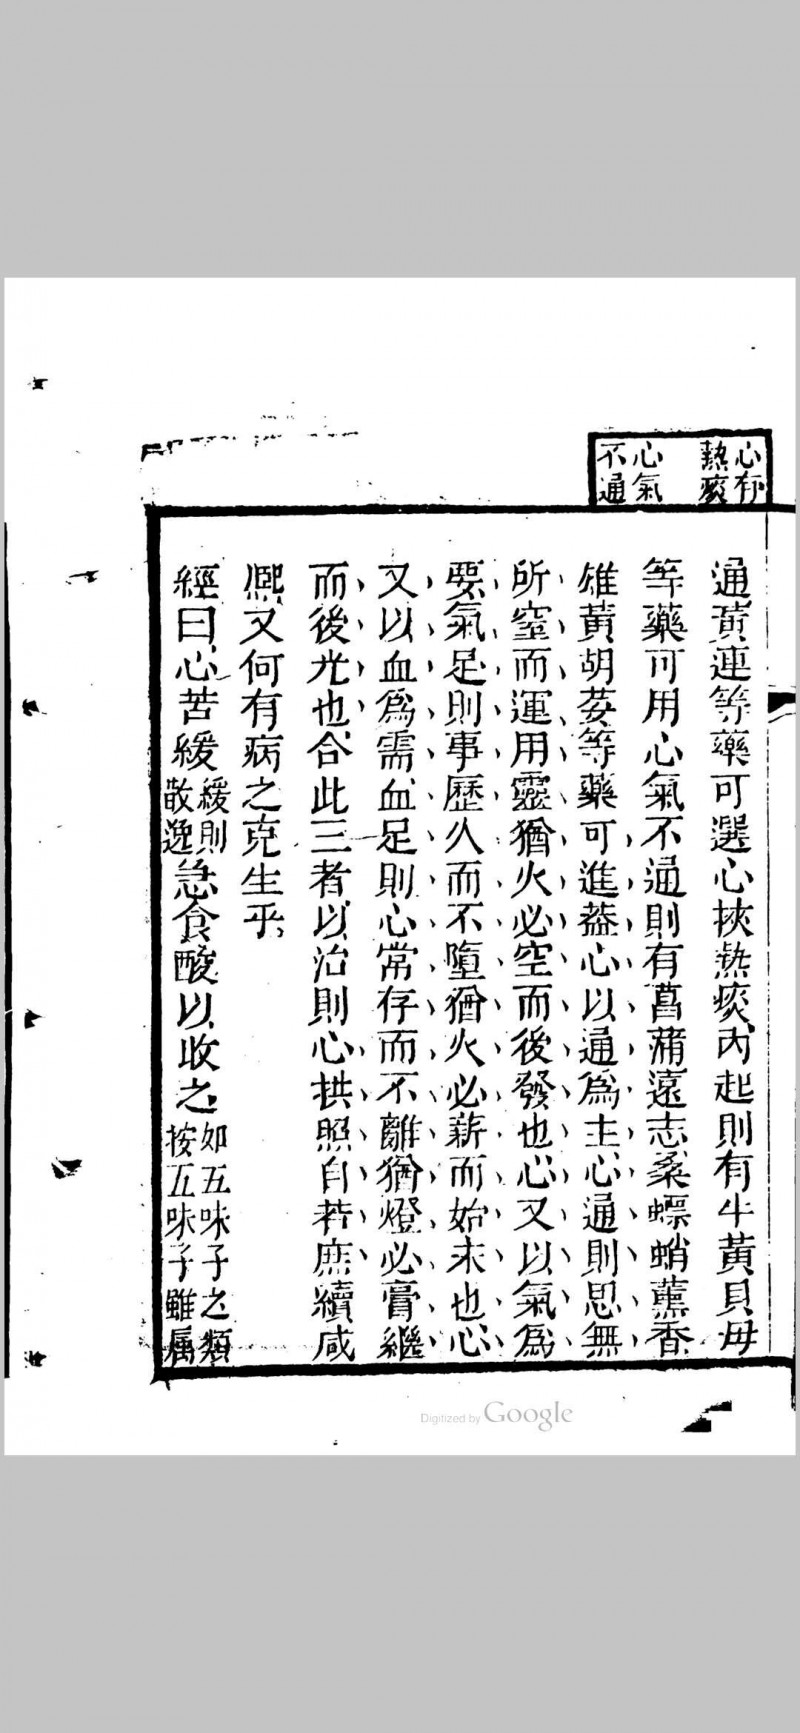 心有
熱痰
心氣
不通
通黃連等藥可選心挾熱痰內起則有牛黃貝母
等藥可用心氣不通則有菖蒲遠志桑螵蛸薰香
雄黃胡荽等藥可進蓋心以通為主心通則思無
所窒而運用靈猶火必空而後發也心又以氣為
要氣足則事歷久而不墮猶火必薪而始末也心
又以血為需血足則心常存而不離猶燈必膏繼
而後光也合此三者以治則心拱照自若庶續咸
熙又何有病之克生乎
經曰心苦緩緩則散逸急食酸以收之如五味子之類按五味子雖属
Digitized by Google